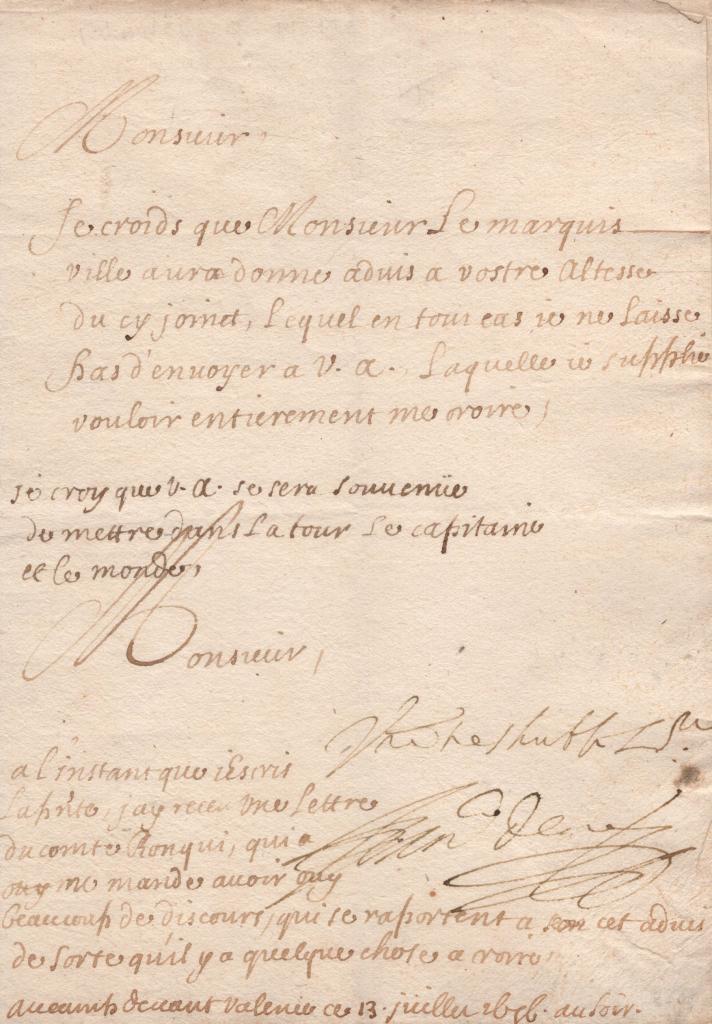 Monsieur,
Je croids que Monsieur Le marquis
ville aura donne aduis a vostre Altesse
Du cy joinct, Lequel en tout cas ie ne Laisse
pas d'envoyer a V. A., Laquelle ie supplie
vouloir entierement me croire,
je croy que V. A. se sera souvenüe
de mettre dans La tour Le capitaine
et le monde,
Monsieur,
a l'instant que iEscris
La pñte, j'ay receu une Lettre
du comte Ronqui, qui a
ouy me mande avoir ouy
beaucoup de discours, qui se raportent a son cet aduis
de sorte qu'il y a quelque chose a croire
au camp devant Valence ce 13. juillet 1656. au soir.